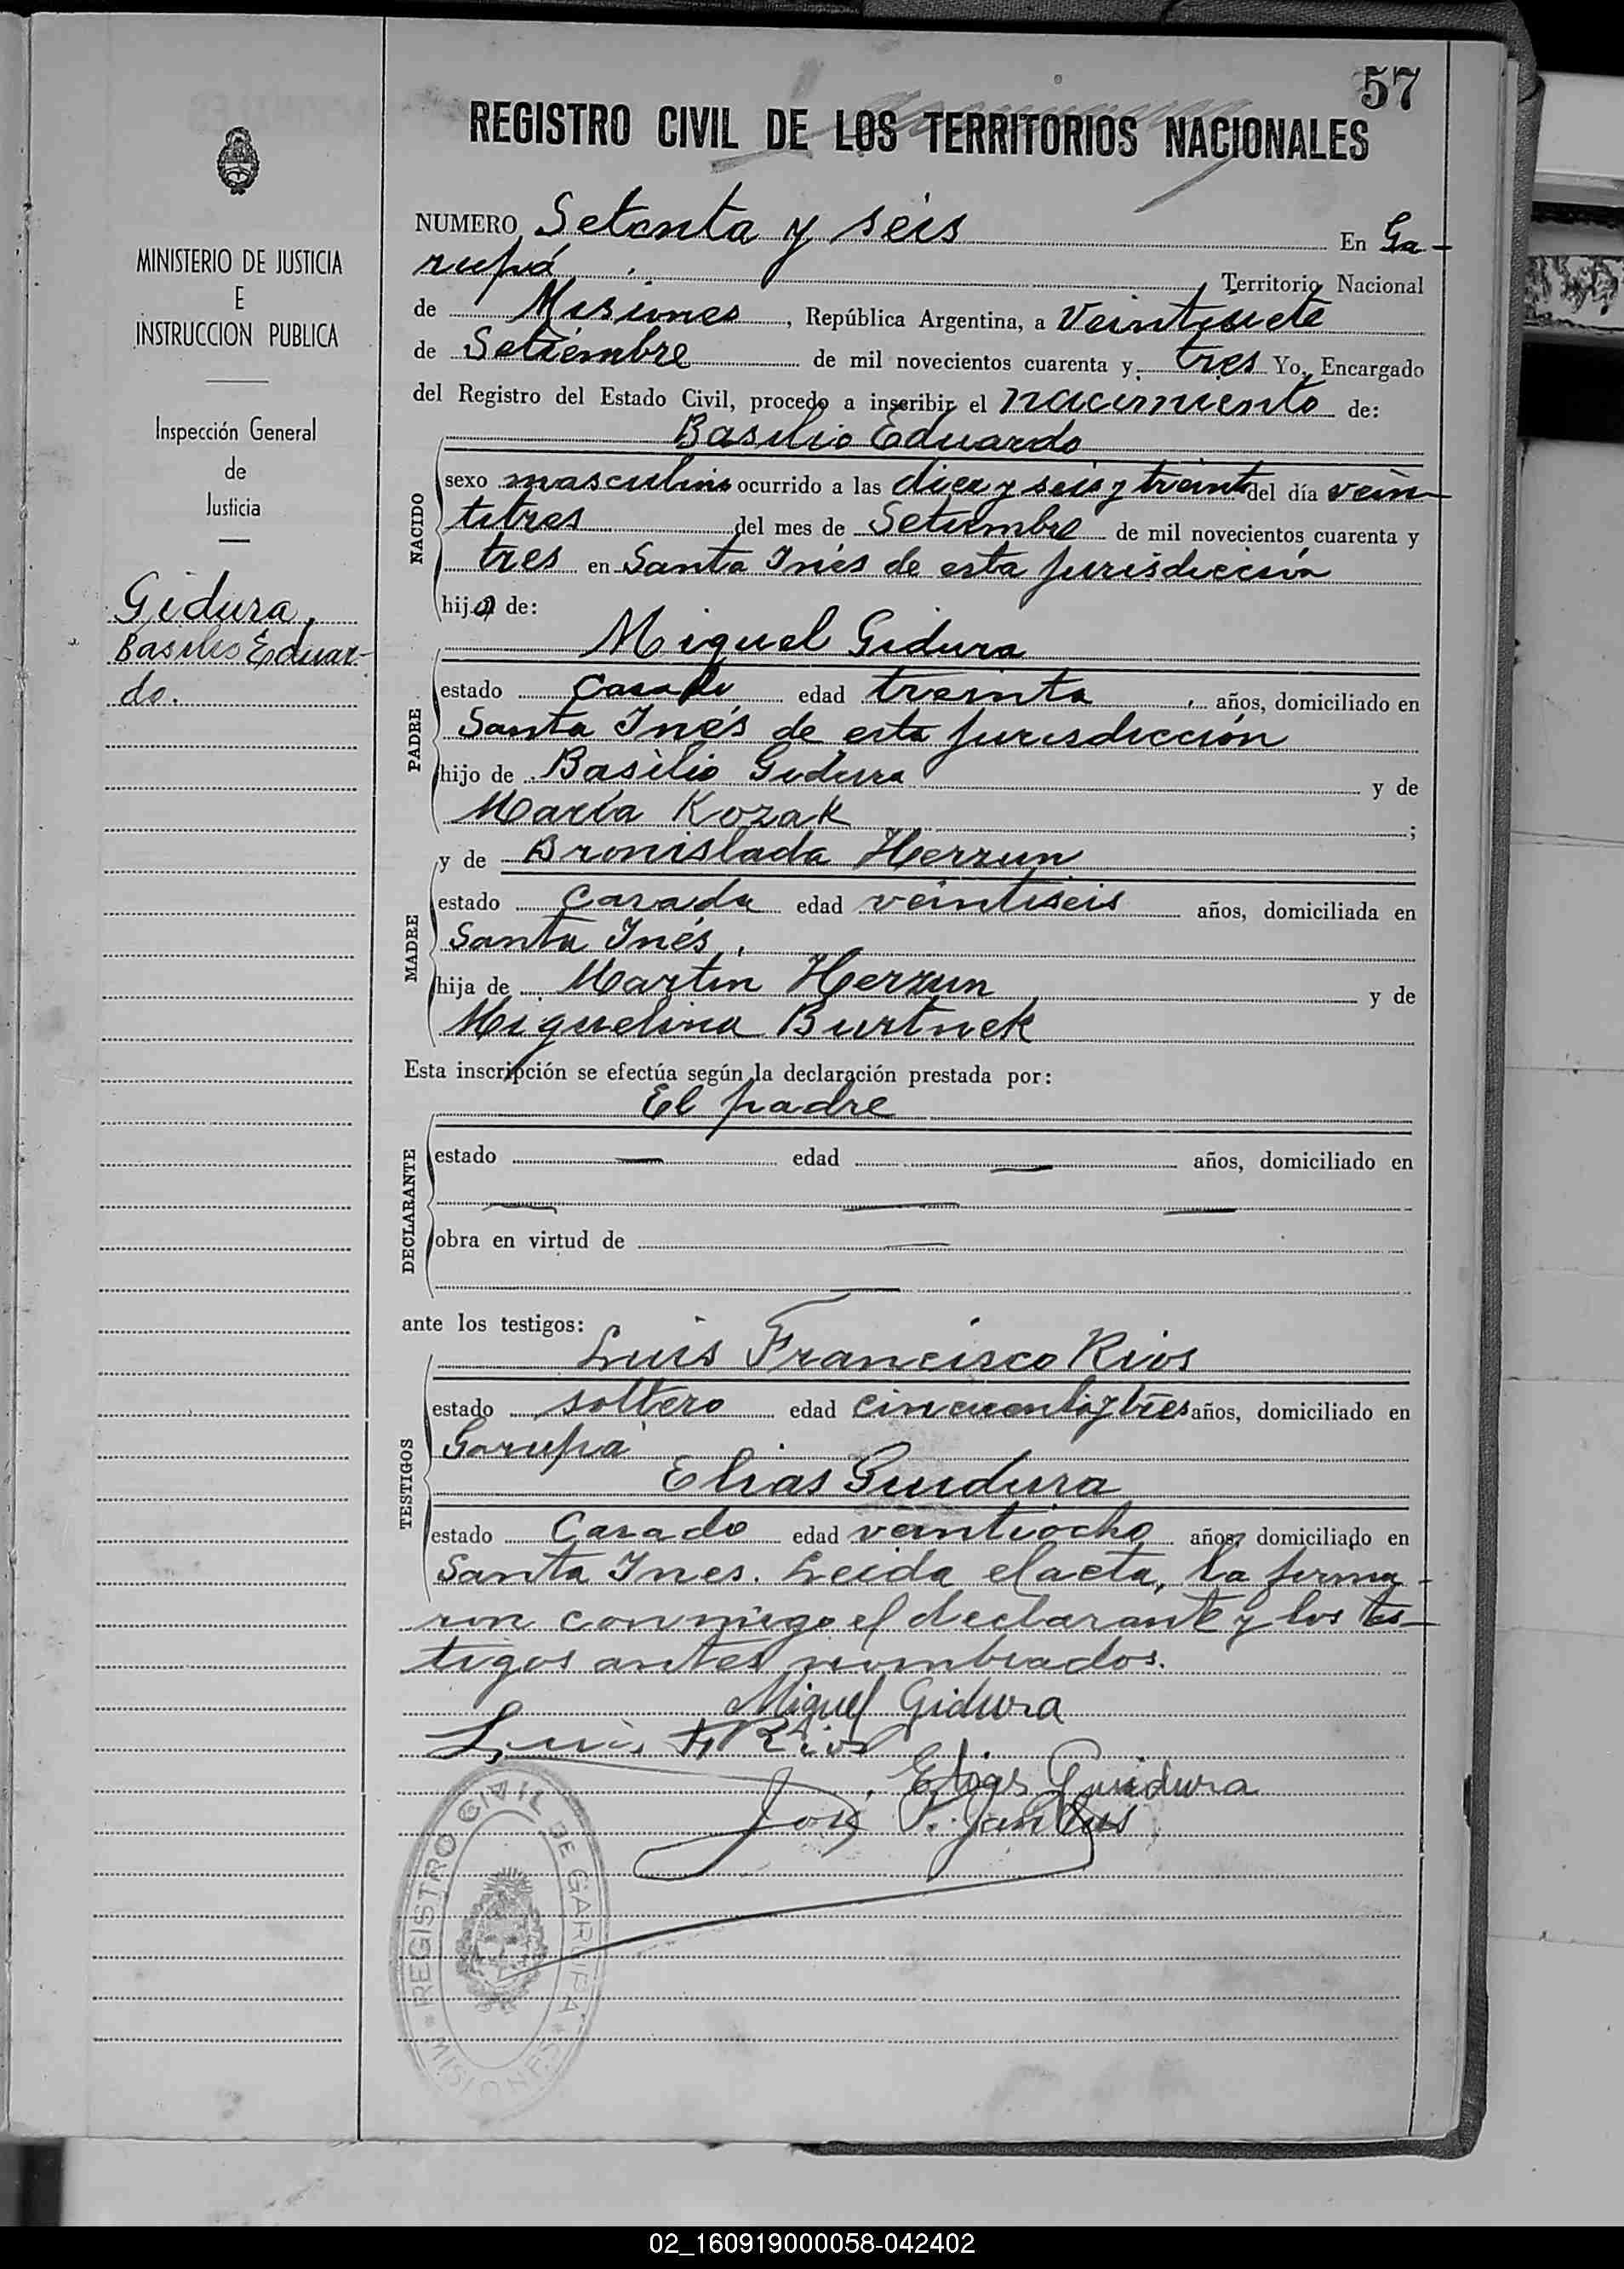 57
REGISTRO CIVIL DE LOS TERRITORIOS NACIONALES
MINISTERIO DE JUSTICIA
E
INSTRUCCION PUBLICA
Inspección General
de
Justicia
Gidura,
Basilio Eduar-
do.
NUMERO Setenta y seis En Ga-
rupá Territorio Nacional
de Misiones, República Argentina, a Veintisiete
de Setiembre de mil novecientos cuarenta y tres Yo, Encargado
del Registro del Estado Civil, procedo a inscribir el nacimiento de:
Basilio Eduardo
NACIDO
sexo masculino ocurrido a las diez y seis y treinta del día vein-
titres del mes de Setiembre de mil novecientos cuarenta y
tres en Santa Inés de esta jurisdicción
hijo de:
Miguel Gidura
PADRE
estado Casado edad treinta, años, domiciliado en
Santa Inés de esta jurisdicción
hijo de Basilio Gidura y de
María Kozak;
y de Bronislada Herzun
MADRE
estado Casada edad veintiseis años, domiciliada en
Santa Inés,
hija de Martin Herzun y de
Miguelina Burtnek
Esta inscripción se efectúa según la declaración prestada por:
El padre
DECLARANTE
estado — edad — años, domiciliado en
— — —
obra en virtud de —
—
ante los testigos:
Luis Francisco Rios
TESTIGOS
estado soltero edad cincuenta y tres años, domiciliado en
Garupa
Elias Guidura
estado Casado edad veintiocho años, domiciliado en
Santa Ines. Leida el acta, la firma-
ron conmigo el declarante y los tes-
tigos antes nombrados.
Miguel Gidura
Luis F. Rios
Elias Guidura
José
REGISTRO CIVIL DE GARUPA
* MISIONES *
02_160919000058-042402